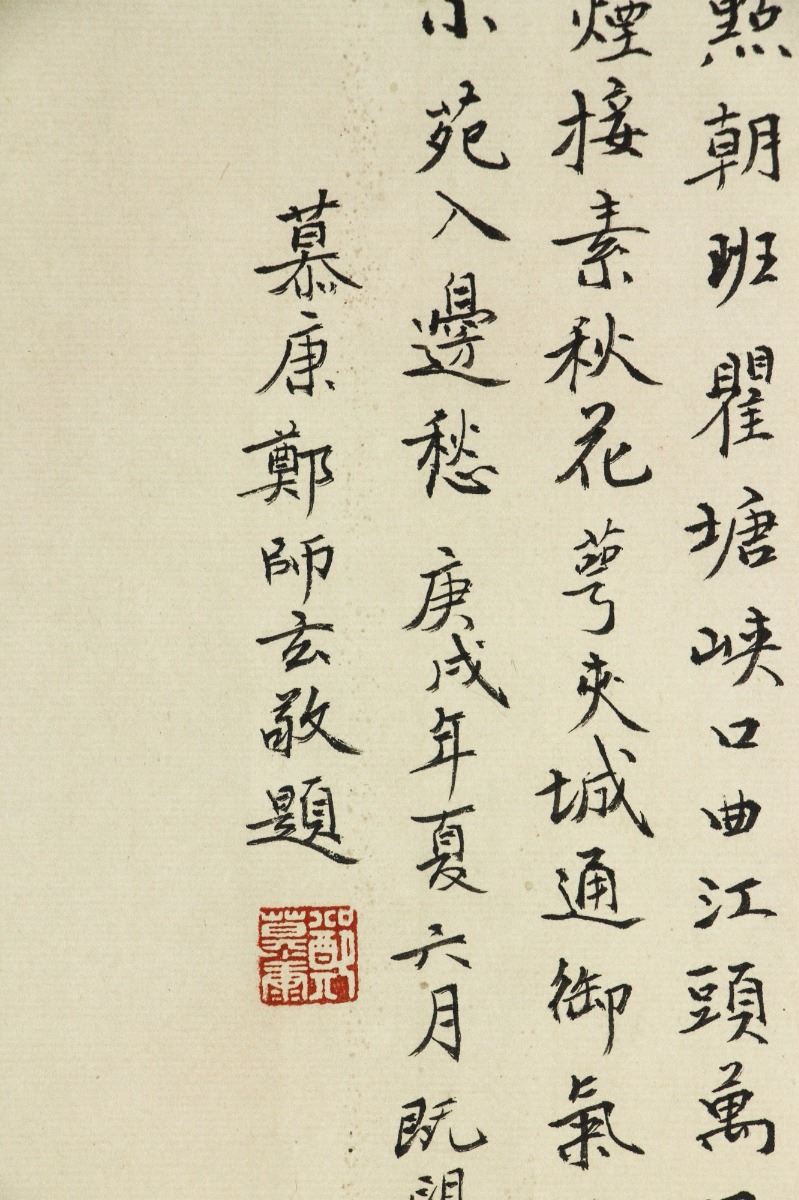 點朝班瞿塘峽口曲江頭萬
煙接素秋花萼夾城通御氣
小苑入邊愁 庚戌年夏六月既望
慕康鄭師玄敬題
鄭慕康